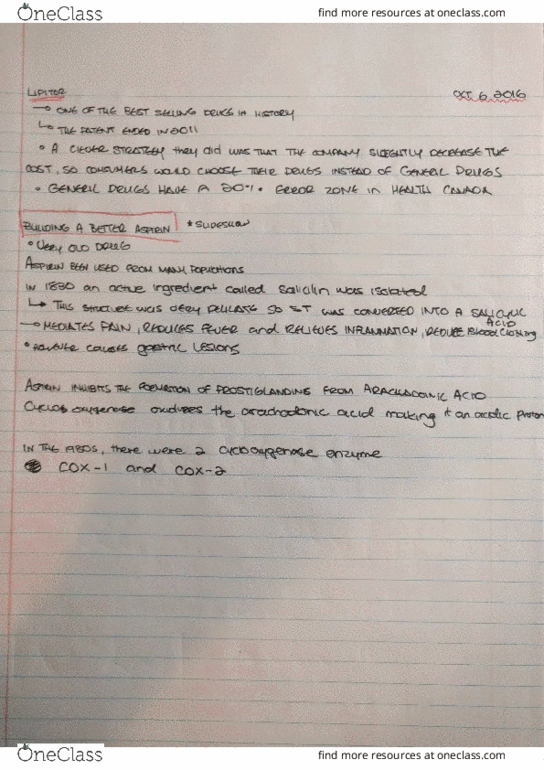 OneClass
find more resources at oneclass.com
LIPITOR
OCT. 6 2016
→ ONE OF THE BEST SELLING DRUGS IN HISTORY
↳ THE PATENT ENDED IN 2011
• A CLEVER STRATEGY they did WAS THAT THE COMPANY SLIGHTLY DECREASE THE
COST, SO CONSUMERS WOULD CHOOSE THEIR DRUGS INSTEAD OF GENERIC DRUGS
• GENERIC DRUGS HAVE A 20% ERROR ZONE IN HEALTH CANADA
BUILDING A BETTER ASPIRIN *SLIDESHOW
• VERY OLD DRUG
ASPIRIN BEEN USED FROM MANY POPULATIONS
IN 1830 an active ingredient called Salicilin was isolated
↳ THIS STRUCTURE WAS VERY DELICATE SO IT WAS CONVERTED INTO A SALICYLIC
ACID
→ MEDIATES PAIN, REDUCES FEVER and RELIEVES INFLAMMATION, REDUCE Blood Clotting
• causes gastric Lesions
ASPIRIN INHIBITS THE FORMATION OF FROM ACID
oxygenase oxidizes the acid making it an acidic proton
IN THE 1980S, there were 2 cyclooxygenase enzyme
COX-1 and COX-2
OneClass
find more resources at oneclass.com